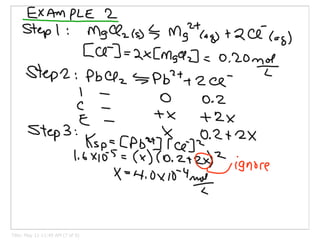 EXAMPLE 2
Step 1: MgCl₂(s) ⇆ Mg²⁺(aq) + 2Cl⁻(aq)
[Cl⁻] = 2x[MgCl₂] = 0.20 mol/L
Step 2: PbCl₂ ⇆ Pb²⁺ + 2Cl⁻
I – 0 0.2
C – +x +2x
E – x 0.2+2x
Step 3: Ksp = [Pb²⁺][Cl⁻]²
1.6x10⁻⁵ = (x)(0.2+2x)² ignore
x = 4.0x10⁻⁴ mol/L